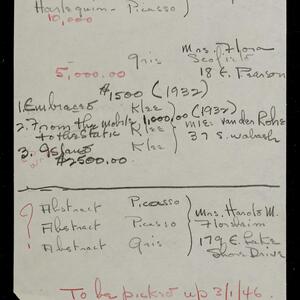 Harlequin - Picasso)
10,000
Gris
Mrs. Flora
5,000.00
18 E. Pearson
$1500 (1932)
1. Embrace Klee
2. From the mobile to the static Klee 1,000.00 (1932)
Mies van der Rohe
37 S. Wabash
3. Klee
$2500.00
?
Abstract Picasso
Abstract Picasso
Abstract Gris
Mrs. Harold M.
Florsheim
179 E. Lake
Shore Drive
To be picked up 3/1/46.